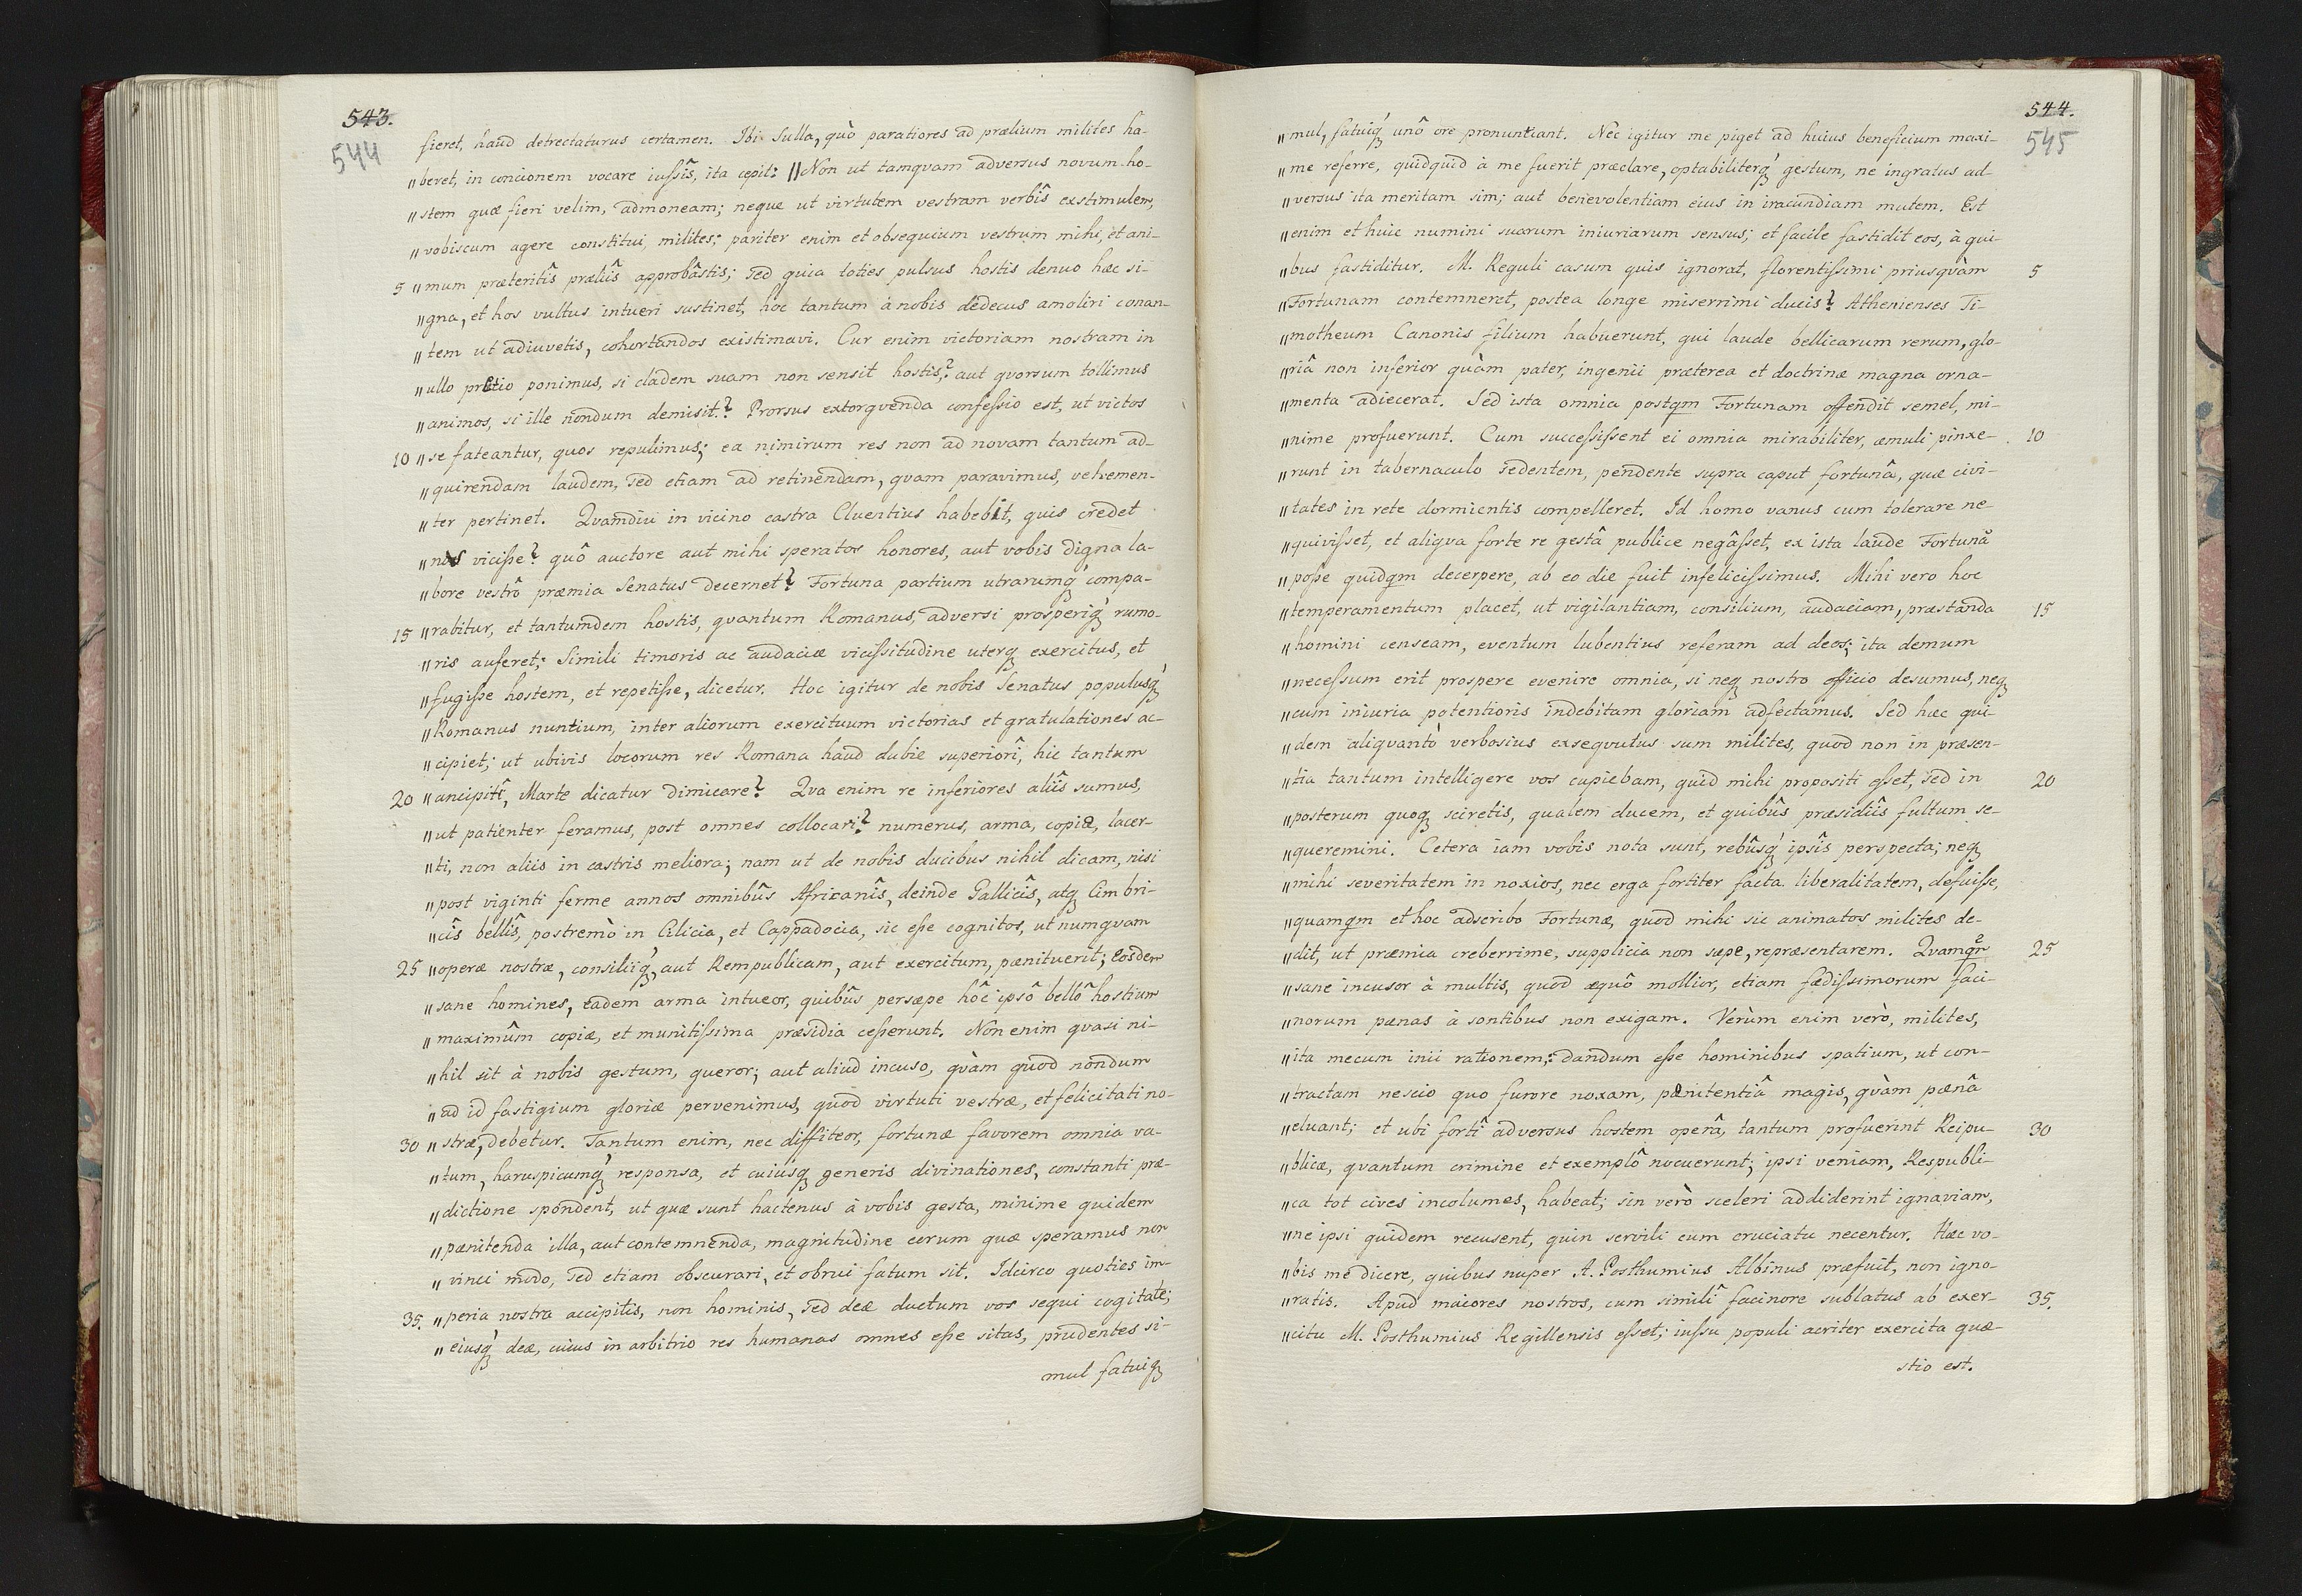 543.
544
fieret, haud detrectaturus certamen. Ibi Sulla, quò paratiores ad prælium milites ha-
„beret, in concionem vocare iussîs, ita cepit: „Non ut tamquam adversus novum ho-
„stem quæ fieri velim, admoneam; neque ut virtutem vestram verbîs exstimulem,
„vobiscum agere constitui, milites; pariter enim et obsequium vestrum mihi, et ani-
5 „mum præteritîs præliîs approbâstis; sed quia toties pulsus hostis denuo hæc si-
„gna, et hos vultus intueri sustinet, hoc tantum à nobis dedecus amoliri conan-
„tem ut adiuvetis, cohortandos existimavi. Cur enim victoriam nostram in
„ullo pretio ponimus, si cladem suam non sensit hostis? aut quorsum tollimus
„animos, si ille nondum demisit? Prorsus extorquenda confessio est, ut victos
10 „se fateantur, quos repulimus; ea nimirum res non ad novam tantum ad-
„quirendam laudem, sed etiam ad retinendam, quam paravimus, vehemen-
„ter pertinet. Qvamdiu in vicino castra Cluentius habebit, quis credet
„nos vicisse? quô auctore aut mihi speratos honores, aut vobis digna la-
„bore vestrô præmia Senatus decernet? Fortuna partium utrarumq́ compa-
15 „rabitur, et tantumdem hostis, qvantum Romanus, adversi prosperiq́ rumo-
„ris auferet; Simili timoris ac audaciæ vicissitudine uterq exercitus, et
„fugisse hostem, et repetisse, dicetur. Hoc igitur de nobis Senatus populusq́
„Romanus nuntium, inter aliorum exercituum victorias et gratulationes ac-
„cipiet; ut ubivis locorum res Romana haud dubie superiorî, hic tantum
20 „ancipitî, Marte dicatur dimicare? Qva enim re inferiores aliîs sumus,
„ut patienter feramus, post omnes collocari? numerus, arma, copiæ, lacer-
„ti, non aliis in castris meliora; nam ut de nobis ducibus nihil dicam, nisi
„post viginti ferme annos omnibûs Africanîs, deinde Gallicîs, atq Cimbri-
„cîs bellîs, postremò in Cilicia, et Cappadocia, sic esse cognitos, ut numqvam
25 „operæ nostræ, consiliiq́, aut Rempublicam, aut exercitum, pænituerit; Eosdem
„sane homines, eadem arma intueor, quibûs persæpe hôc ipsô bellô hostium
„maximûm copiæ, et munitissima præsidia cesserunt. Non enim qvasi ni-
„hil sit à nobis gestum, queror; aut aliud incuso, qvàm quod nondum
„ad id fastigium gloriæ pervenimus, quod virtuti vestræ, et felicitati no-
30 „stræ, debetur. Tantum enim, nec diffiteor, fortunæ favorem omnia va-
„tum, haruspicumq́ responsa, et cuiusq generis divinationes, constanti præ-
„dictione spondent, ut quæ sunt hactenus à vobis gesta, minime quidem
„pænitenda illa, aut contemnenda, magnitudine eorum quæ speramus non
„vinci modo, sed etiam obscurari, et obrui fatum sit. Idcirco quoties im-
35. „peria nostra accipitis, non hominis, sed deæ ductum vos sequi cogitate;
„eiusq́ deæ, cuius in arbitrio res humanas omnes esse sitas, prudentes si-
mul fatuiq
544.
545
„mul, fatuiq́ unô ore pronuntiant. Nec igitur me piget ad huius beneficium maxi-
„me referre, quidquid à me fuerit præclare, optabiliterq́ gestum, ne ingratus ad-
„versus ita meritam sim; aut benevolentiam eius in iracundiam mutem. Est
„enim et huic numini suarum iniuriarum sensus; et facile fastidit eos, à qui-
„bus fastiditur. M. Reguli casum quis ignorat, florentissimi priusqvàm 5
„Fortunam contemneret, postea longe miserrimi ducis? Athenienses Ti-
„motheum Canonis filium habuerunt, qui laude bellicarum rerum, glo-
„riâ non inferior quàm pater, ingenii præterea et doctrinæ magna orna-
„menta adiecerat. Sed ista omnia postqm Fortunam offendit semel, mi-
„nime profuerunt. Cum successissent ei omnia mirabiliter, æmuli pinxe- 10
„runt in tabernaculo sedentem, pendente supra caput fortunâ, quæ civi-
„tates in rete dormientis compelleret. Id homo vanus cum tolerare ne-
„quivisset, et aliqva forte re gestâ publice negâsset, ex ista laude Fortunã
„posse quidqm decerpere, ab eo die fuit infelicissimus. Mihi vero hoc
„temperamentum placet, ut vigilantiam, consilium, audaciam, præstanda 15
„homini censeam, eventum lubentius referam ad deos; ita demum
„necessum erit prospere evenire omnia, si neq nostro officio desumus, neq
„cum iniuria potentioris indebitam gloriam adfectamus. Sed hæc qui-
„dem aliqvantò verbosius exseqvutus sum milites, quod non in præsen-
„tia tantum intelligere vos cupiebam, quid mihi propositi esset, sed in 20
„posterum quoq sciretis, qualem ducem, et quibûs præsidiîs fultum se-
„queremini. Cetera iam vobis nota sunt, rebûsq́ ipsîs perspecta; neq
„mihi severitatem in noxios, nec erga fortiter facta liberalitatem, defuisse,
„quamqm et hoc adscribo Fortunæ, quod mihi sic animatos milites de-
„dit, ut præmia creberrime, supplicia non sæpe, repræsentarem. Qvamqm 25
„sane incusor à multis, quod æquô mollior, etiam fædissimorum faci-
„norum pænas à sontibus non exigam. Verùm enim verò, milites,
„ita mecum inii rationem; dandum esse hominibus spatium, ut con-
„tractam nescio quo furore noxam, pænitentiâ magis, qvàm pænâ
„eluant; et ubi fortî adversus hostem operâ, tantum profuerint Reipu- 30
„blicæ, qvantum crimine et exemplô nocuerunt; ipsi veniam, Respubli-
„ca tot cives incolumes, habeat; sin verò sceleri addiderint ignaviam,
„ne ipsi quidem recusent, quin servili cum cruciatu necentur. Hæc vo-
„bis me dicere, quibus nuper A. Posthumius Albinus præfuit, non igno-
„ratis. Apud maiores nostros, cum similî facinore sublatus ab exer- 35.
„citu M. Posthumius Regillensis esset; iussu populi acriter exercita quæ-
stio est.